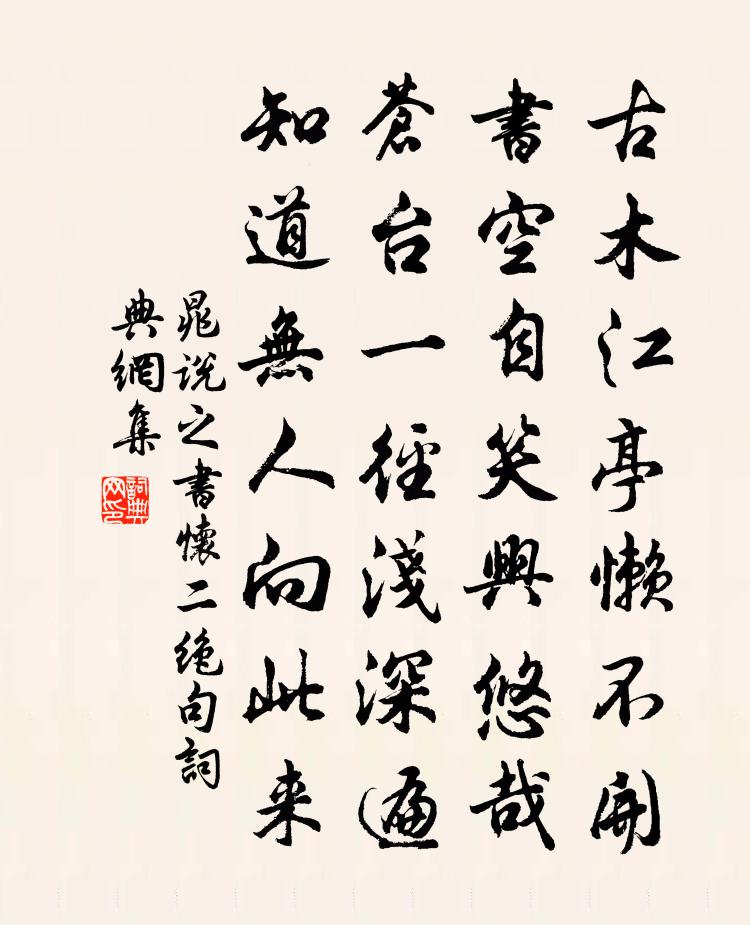 古木江亭懶不開
書空自笑興悠哉
蒼台一徑淺深遍
知道無人向此来
晁說之書懷二絶句詞
典網集
詞典网印